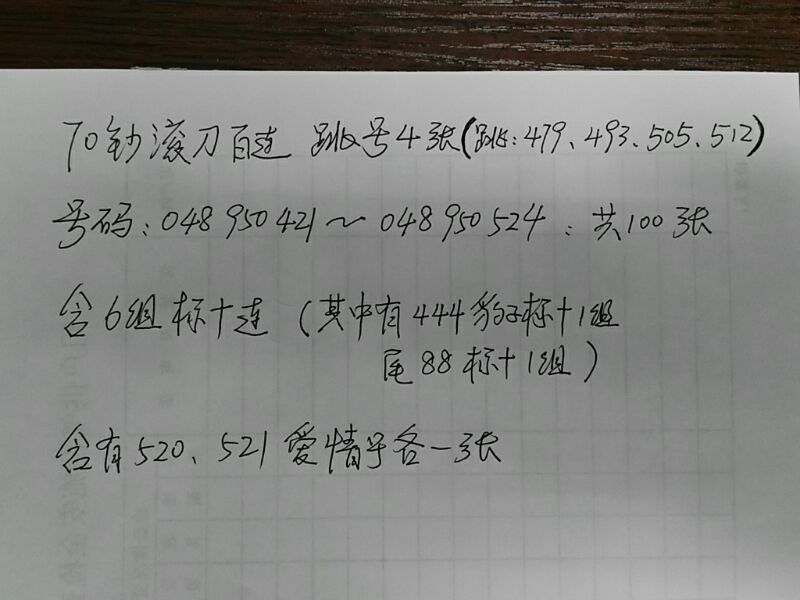 70钞滚刀百连 跳号4张(跳:479、493、505、512)
号码:048 950 421~048 950 524:共100张
含6组标十连(其中有444豹子标十1组
尾88标十1组)
含有520、521爱情号各一张